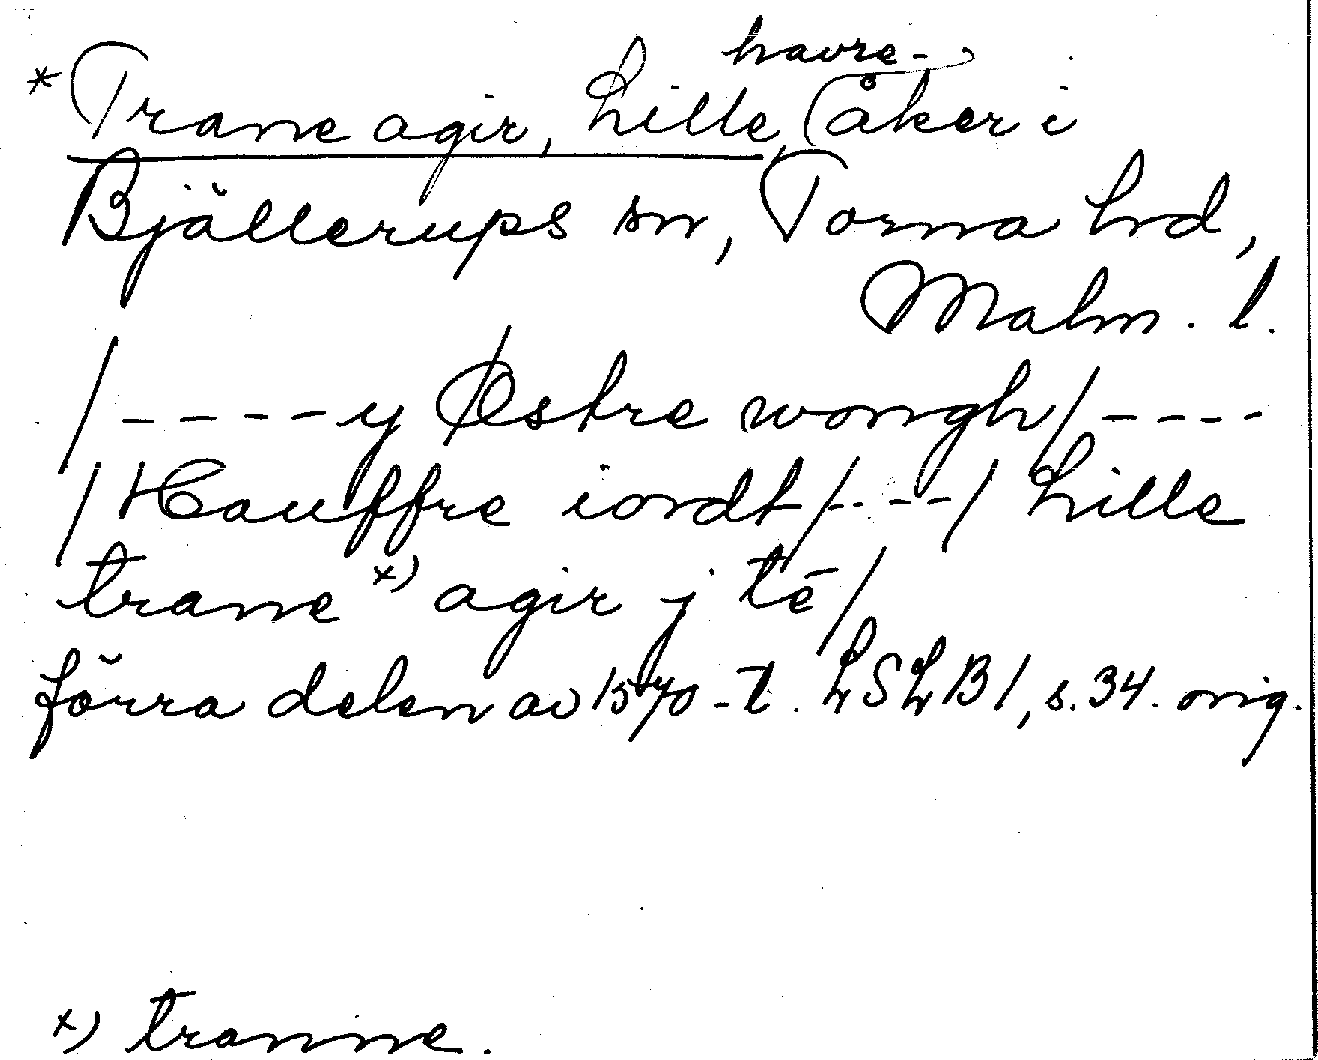 havre-
* Trane agir, Lille, åker i
Bjällerups sn, Torna hrd,
Malm. l.
/----y Østre wongh/----
/Hauffre iordt/----/ Lille
trane x) agir j tē/
förra delen av 1570-t. LSLB1, s. 34. orig.
x) tranne.